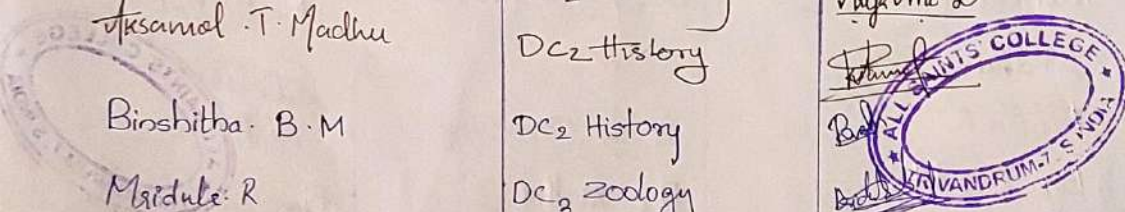 Aksamol .T. Madhu DC2 History
Binshitha. B.M DC2 History
Mridula. R DC3 Zoology
ALL SAINTS' COLLEGE
TRIVANDRUM-7. S. INDIA